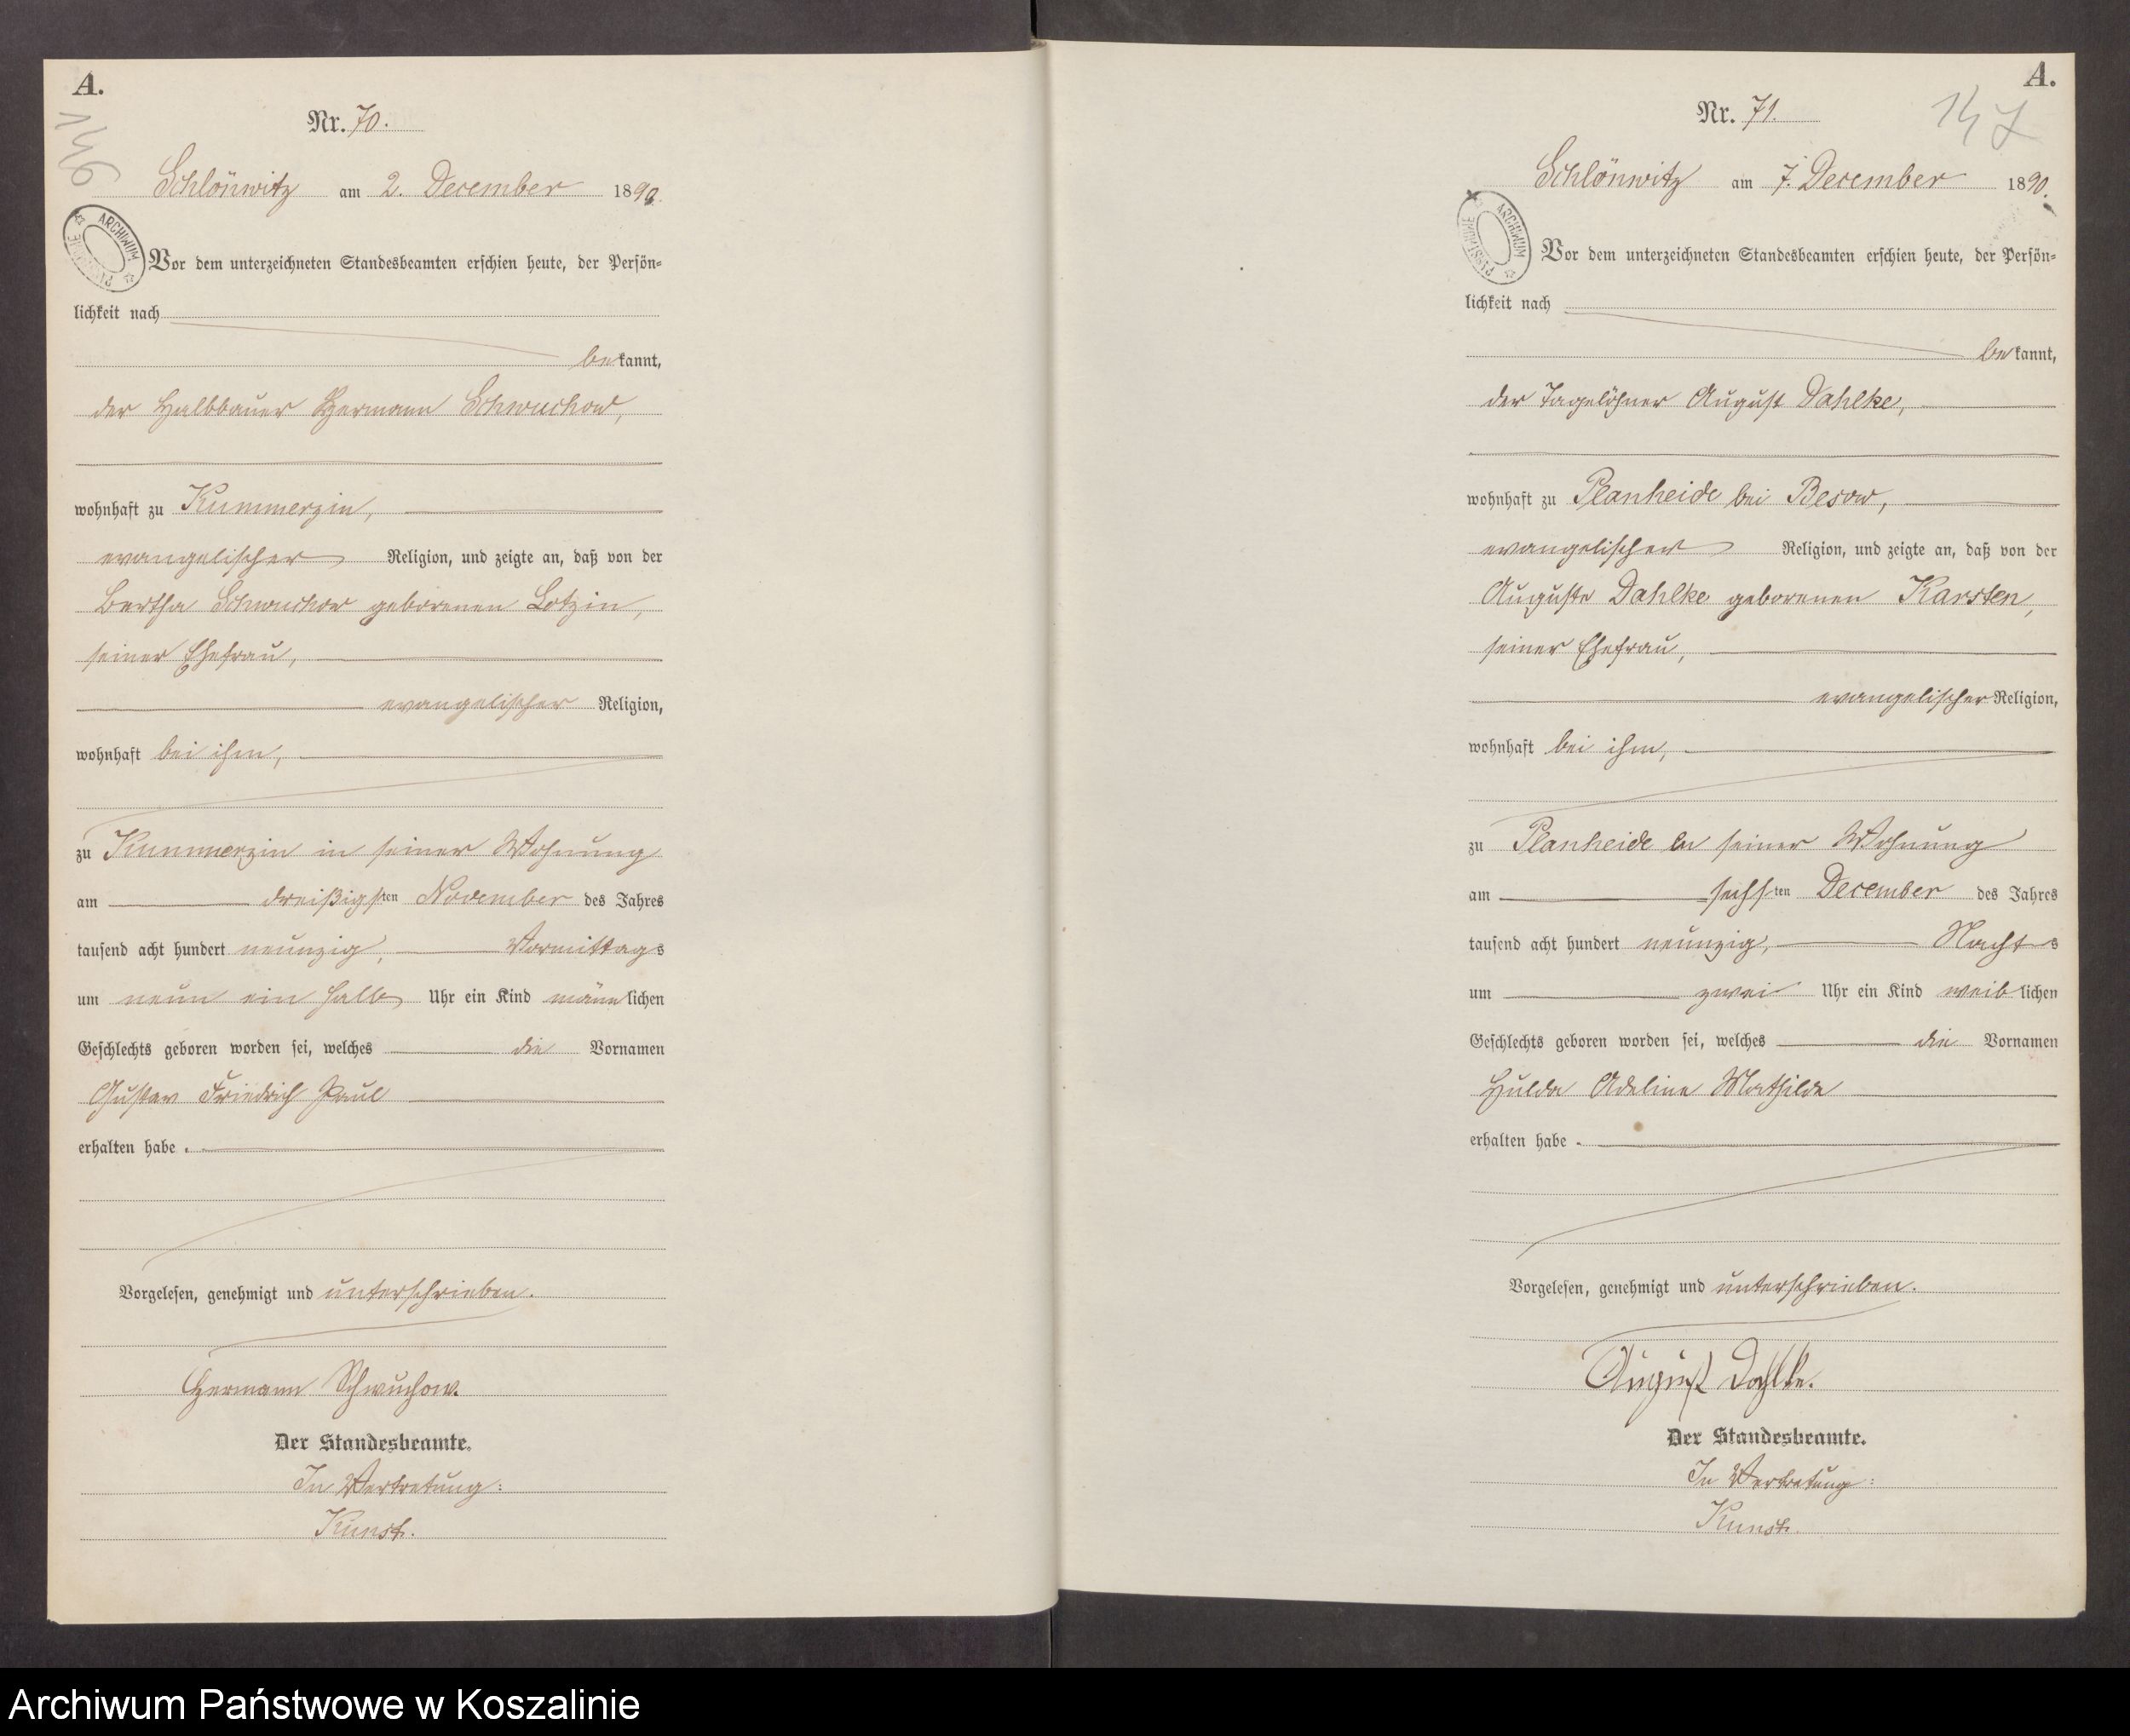 A.
146
Nr. 70.
Schlönwitz am 2. December 1890.
ARCHIWUM PAŃSTWOWE
Vor dem unterzeichneten Standesbeamten erschien heute, der Persön-
lichkeit nach
bekannt,
der Halbbauer Hermann Schwuchow,
wohnhaft zu Kummerzin,
evangelischer Religion, und zeigte an, daß von der
Bertha Schwuchow geborenen Lotzin,
seiner Ehefrau,
evangelischer Religion,
wohnhaft bei ihm,
zu Kummerzin in seiner Wohnung
am dreißigsten November des Jahres
tausend acht hundert neunzig, Vormittags
um neun ein halb Uhr ein Kind männlichen
Geschlechts geboren worden sei, welches die Vornamen
Gustav Friedrich Paul
erhalten habe.
Vorgelesen, genehmigt und unterschrieben.
Hermann Schwuchow.
Der Standesbeamte.
In Vertretung:
Kunst.
A.
147
Nr. 71.
Schlönwitz am 7. December 1890.
ARCHIWUM PAŃSTWOWE
Vor dem unterzeichneten Standesbeamten erschien heute, der Persön-
lichkeit nach
bekannt,
der Tagelöhner August Dahlke,
wohnhaft zu Planheide bei Besow,
evangelischer Religion, und zeigte an, daß von der
Auguste Dahlke geborenen Karsten,
seiner Ehefrau,
evangelischer Religion,
wohnhaft bei ihm,
zu Planheide in seiner Wohnung
am sechsten December des Jahres
tausend acht hundert neunzig, Nachts
um zwei Uhr ein Kind weiblichen
Geschlechts geboren worden sei, welches die Vornamen
Hulda Adeline Mathilde
erhalten habe.
Vorgelesen, genehmigt und unterschrieben.
August Dahlke.
Der Standesbeamte.
In Vertretung:
Kunst.
Archiwum Państwowe w Koszalinie